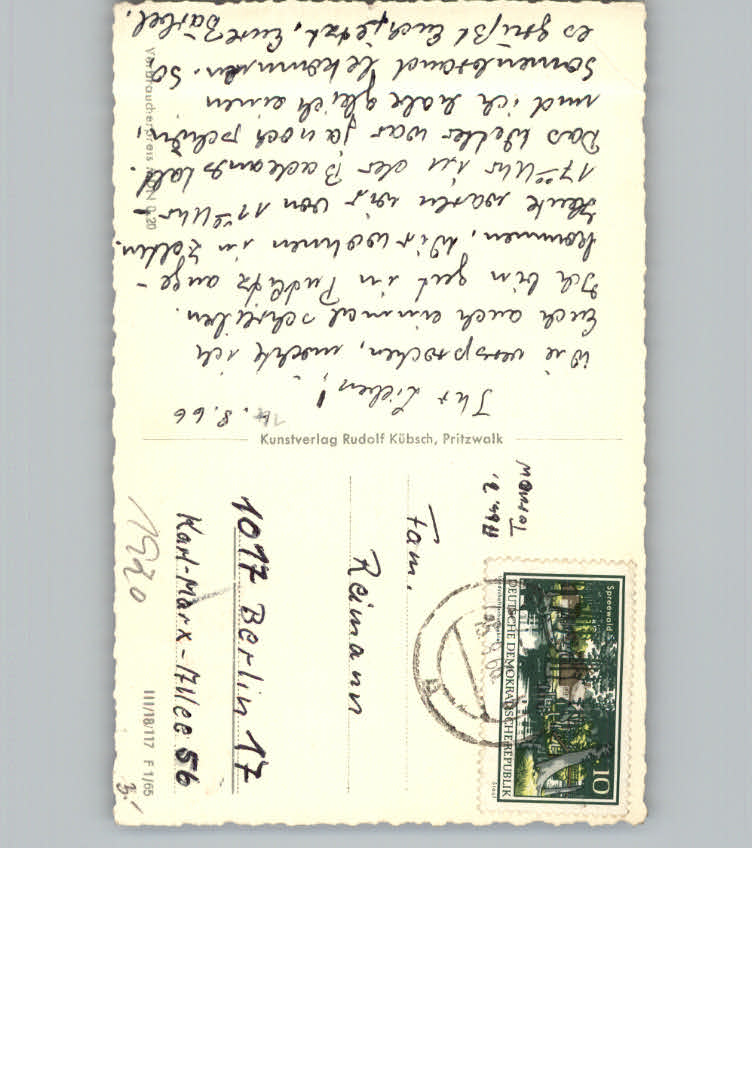 14. 8. 66
Ihr Lieben!
Wie versprochen, möchte ich
Euch auch einmal schreiben.
Ich bin gut in Putlitz ange-
kommen. Wir wohnen in Zelten.
Heute waren wir von 11 00 Uhr -
17 00 Uhr in der Badeanstalt.
Das Wetter war ja noch schön,
und ich habe gleich einen
Sonnenbrand bekommen. So
es grüßt Euch jetzt, Eure Bärbel.
Verbraucherpreis MDN 0,20
Kunstverlag Rudolf Kübsch, Pritzwalk
Fam.
Reimann
1017 Berlin 17
Karl-Marx-Allee 56
1920
III/18/117 F 1/65
3,-
Spreewald
DEUTSCHE DEMOKRATISCHE REPUBLIK
10